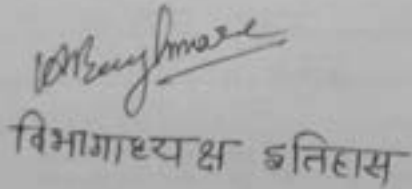 विभागाध्यक्ष इतिहास